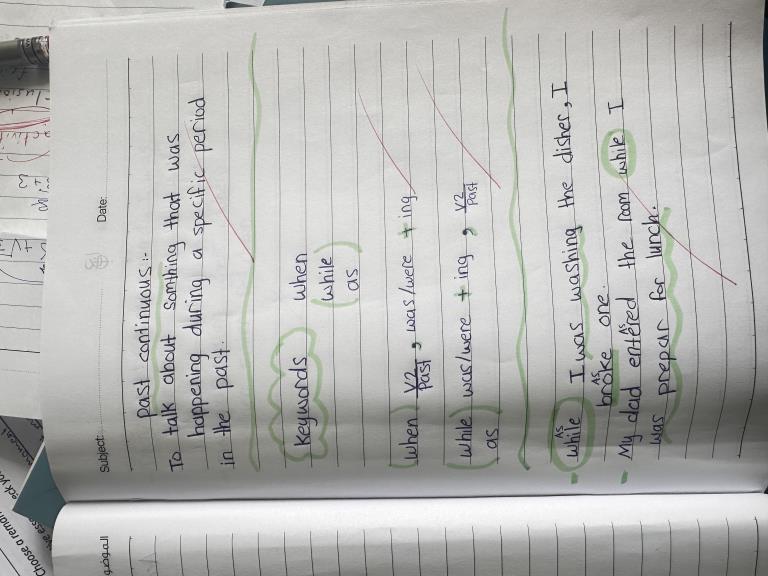 Subject:
Date:
past continuous :-
To talk about somthing that was
happening during a specific period
in the past.
Keywords when
while
as
when V2/Past , was/were + ing
while was/were + ing , V2/Past
as
As
- while I was washing the disher, I
As
broke one.
As
- My dad entered the room while I
was prepar for lunch.
الموضوع
Choose a